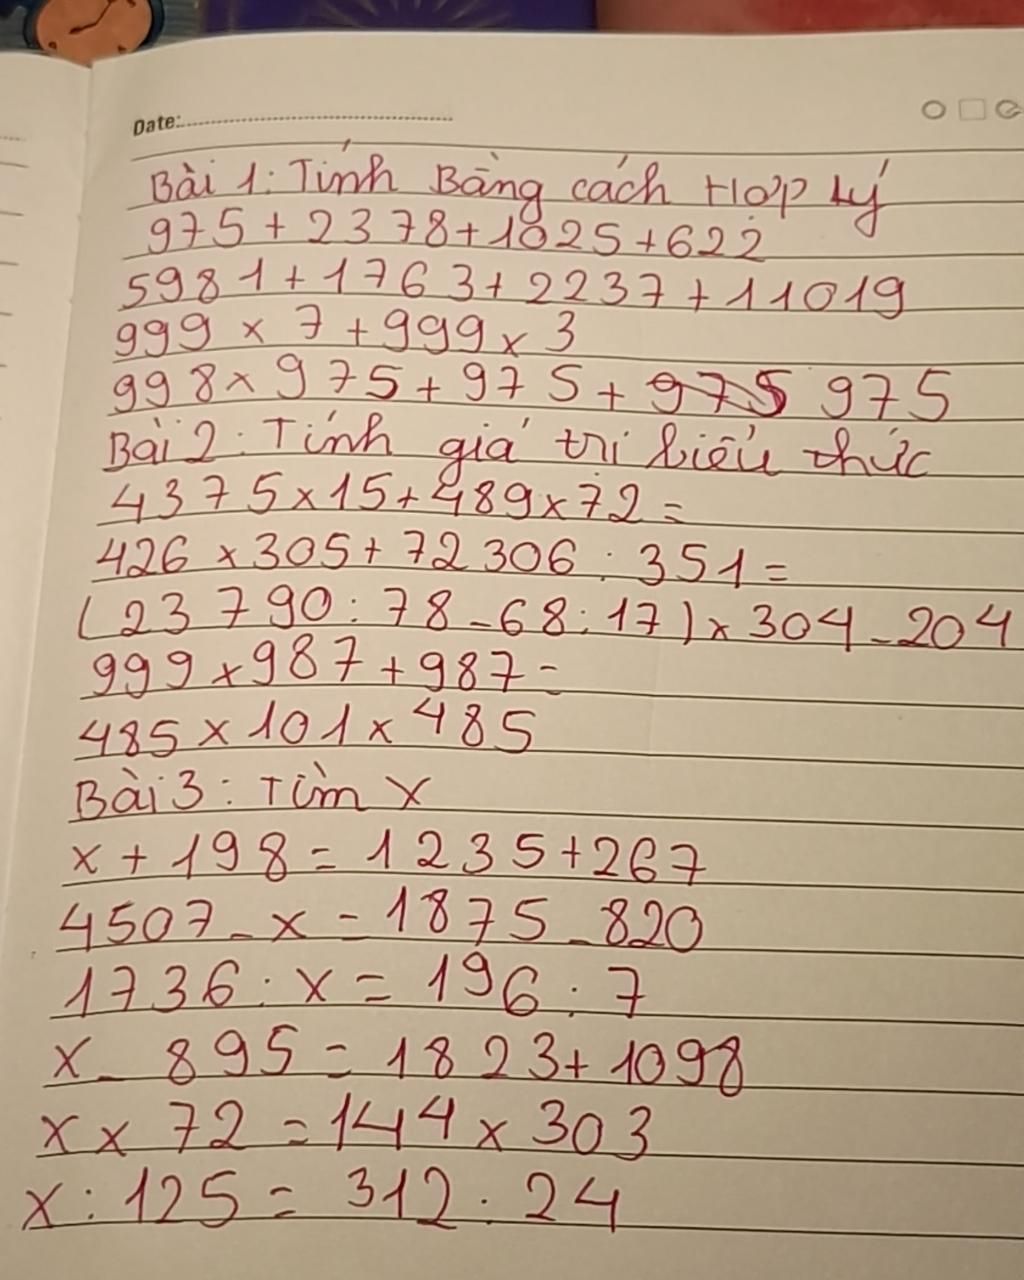 Date:
Bài 1: Tính Bằng cách Hợp lý
975 + 2378 + 1025 + 622
5981 + 1763 + 2237 + 11019
999 x 7 + 999 x 3
998 x 975 + 975 + 975 975
Bài 2: Tính giá trị biểu thức
4375 x 15 + 489 x 72 =
426 x 305 + 72306 : 351 =
(23790 : 78 - 68 : 17) x 304 - 204
999 x 987 + 987 =
485 x 101 x 485
Bài 3: Tìm x
x + 198 = 1235 + 267
4507 - x = 1875 - 820
1736 : x = 196 : 7
x - 895 = 1823 + 1098
x x 72 = 144 x 303
x : 125 = 312 : 24